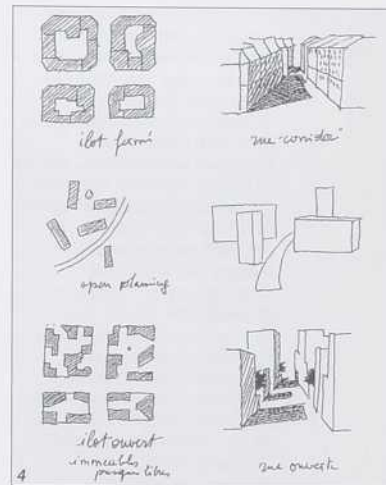 ilot fermé
rue "corridor"
open planning
ilot ouvert
immeubles
presque libres
rue ouverte
4